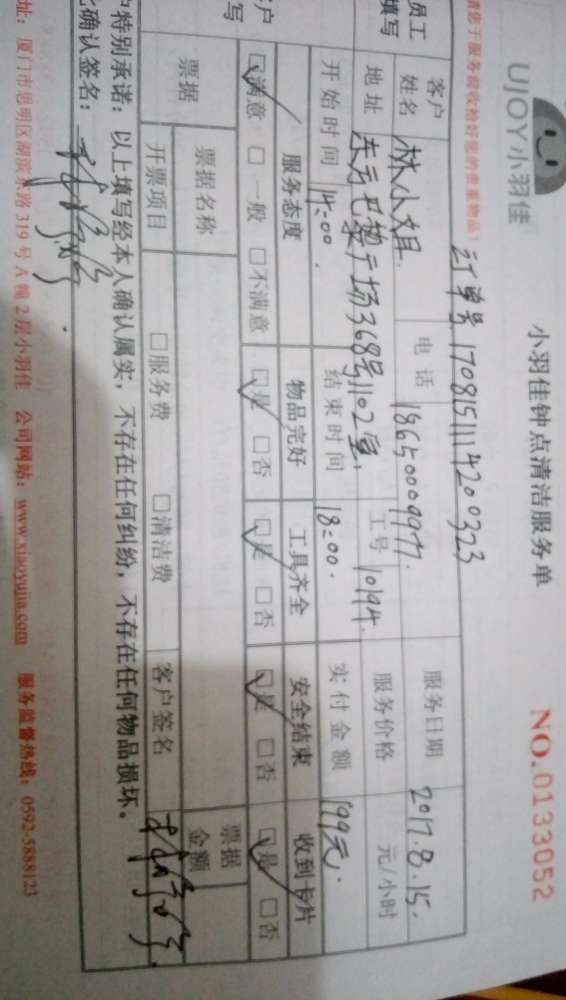 UJOY小羽佳
小羽佳钟点清洁服务单
NO.0133052
请您于服务前收拾好您的贵重物品！
订单号 1708151114200323
员工填写
客户姓名 林小姐 电话 18650009977 服务日期 2017.8.15.
地址 东方巴黎广场368号1102室. 工号 10194. 服务价格 元/小时
开始时间 14:00. 结束时间 18:00. 实付金额 199元.
客户填写
服务态度 物品完好 工具齐全 安全结束 收到卡片
☑满意 □一般 □不满意 ☑是 □否 ☑是 □否 ☑是 □否 ☑是 □否
票据 票据名称 票据金额
开票项目 □服务费 □清洁费 客户签名
户特别承诺：以上填写经本人确认属实，不存在任何纠纷，不存在任何物品损坏。
此确认签名：
址：厦门市思明区湖滨东路319号A幢2层小羽佳 公司网站：www.xiaoyujia.com 服务监督热线：0592-5888123